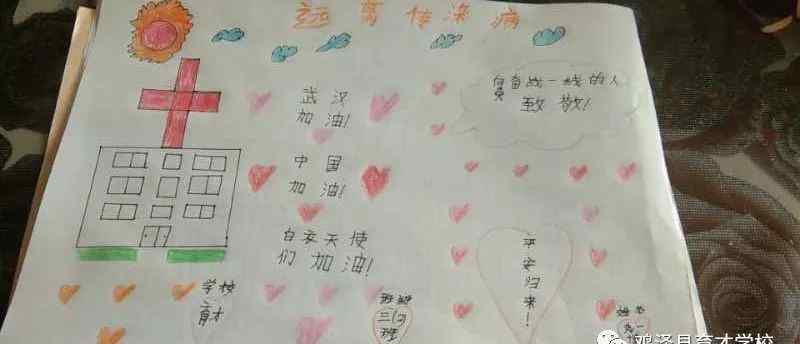 远离传染病
武汉
加油!
奋战一线的人
致敬!
中国
加油!
白衣天使
们加油!
平安归来!
学校
育才
班级
班
姓名
鸡泽县育才学校